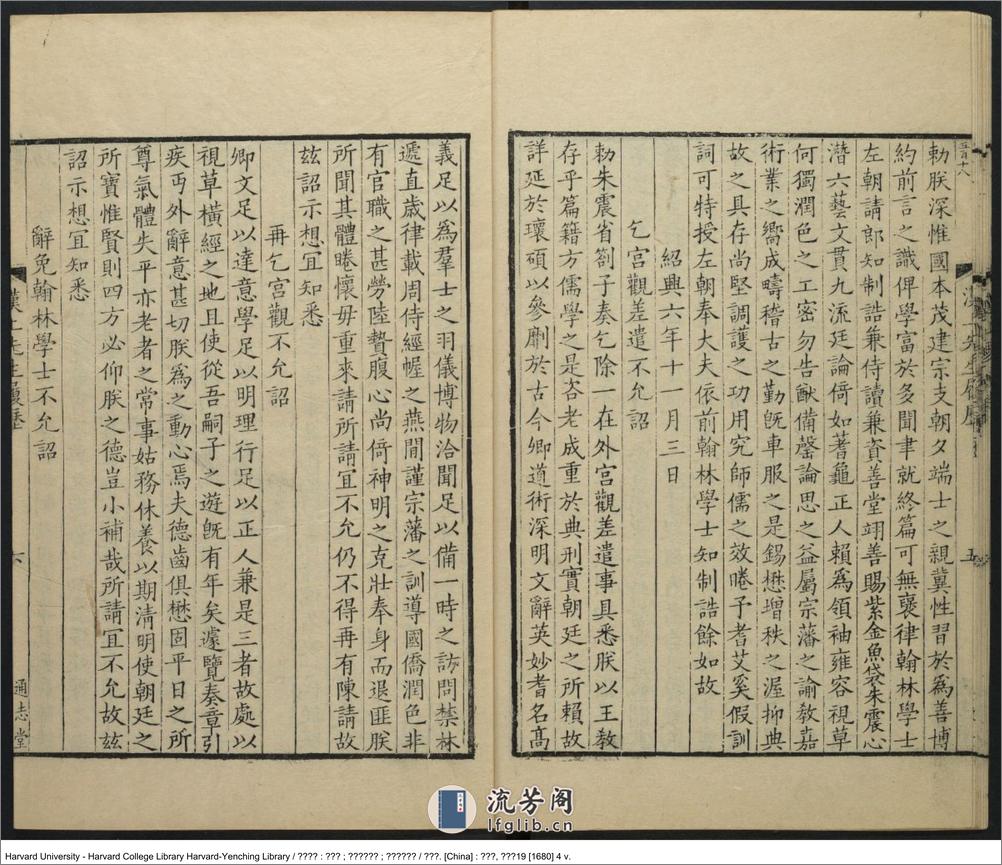 勑朕深惟國本茂建宗支朝夕端士之親冀性習於為善博
約前言之識俾學富於多聞聿就終篇可無褒律翰林學士
左朝請郎知制誥兼侍讀兼資善堂翊善賜紫金魚袋朱震心
潛六藝文貫九流廷論倚如蓍龜正人賴為領袖雍容視草
何獨潤色之工密勿告猷備罄論思之益屬宗藩之諭教嘉
術業之嚮成疇稽古之勤旣車服之是錫懋增秩之渥抑典
故之具存尚堅調護之功用究師儒之效睠予耆艾奚假訓
詞可特授左朝奉大夫依前翰林學士知制誥餘如故
紹興六年十一月三日
乞宫觀差遣不允詔
勑朱震省劄子奏乞除一在外宫觀差遣事具悉朕以王教
存乎篇籍方儒學之是咨老成重於典刑實朝廷之所賴故
詳延於瓌碩以參劘於古今卿道術深明文辭英妙耆名高
義足以為羣士之羽儀博物洽聞足以備一時之訪問禁林
遞直歲律載周侍經幄之燕閒謹宗藩之訓導國僑潤色非
有官職之甚勞陸贄腹心尚倚神明之克壯奉身而退匪朕
所聞其體睠懷毋重來請所請宜不允仍不得再有陳請故
兹詔示想宜知悉
再乞宫觀不允詔
卿文足以達意學足以明理行足以正人兼是三者故處以
視草橫經之地且使從吾嗣子之遊旣有年矣遽覽奏章引
疾丐外辭意甚切朕為之動心焉夫德齒俱懋固平日之所
尊氣體失平亦老者之常事姑務休養以期清明使朝廷之
所寶惟賢則四方必仰朕之德豈小補哉所請宜不允故兹
詔示想宜知悉
辭免翰林學士不允詔
漢上先生履歷
六
通志堂
五
流芳阁
lfglib.cn
Harvard University - Harvard College Library Harvard-Yenching Library / ???? : ??? ; ?????? ; ?????? / ???. [China] : ???, ???19 [1680] 4 v.